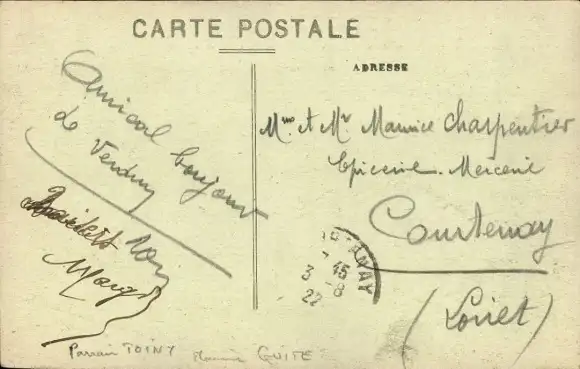 CARTE POSTALE
ADRESSE
Amical bonjour
de Verdun
Mme et Mr Maurice Charpentier
Epicerie. Mercerie
Courtenay
(Loiret)
3 -8
22
Parrain TOINY
GUITE